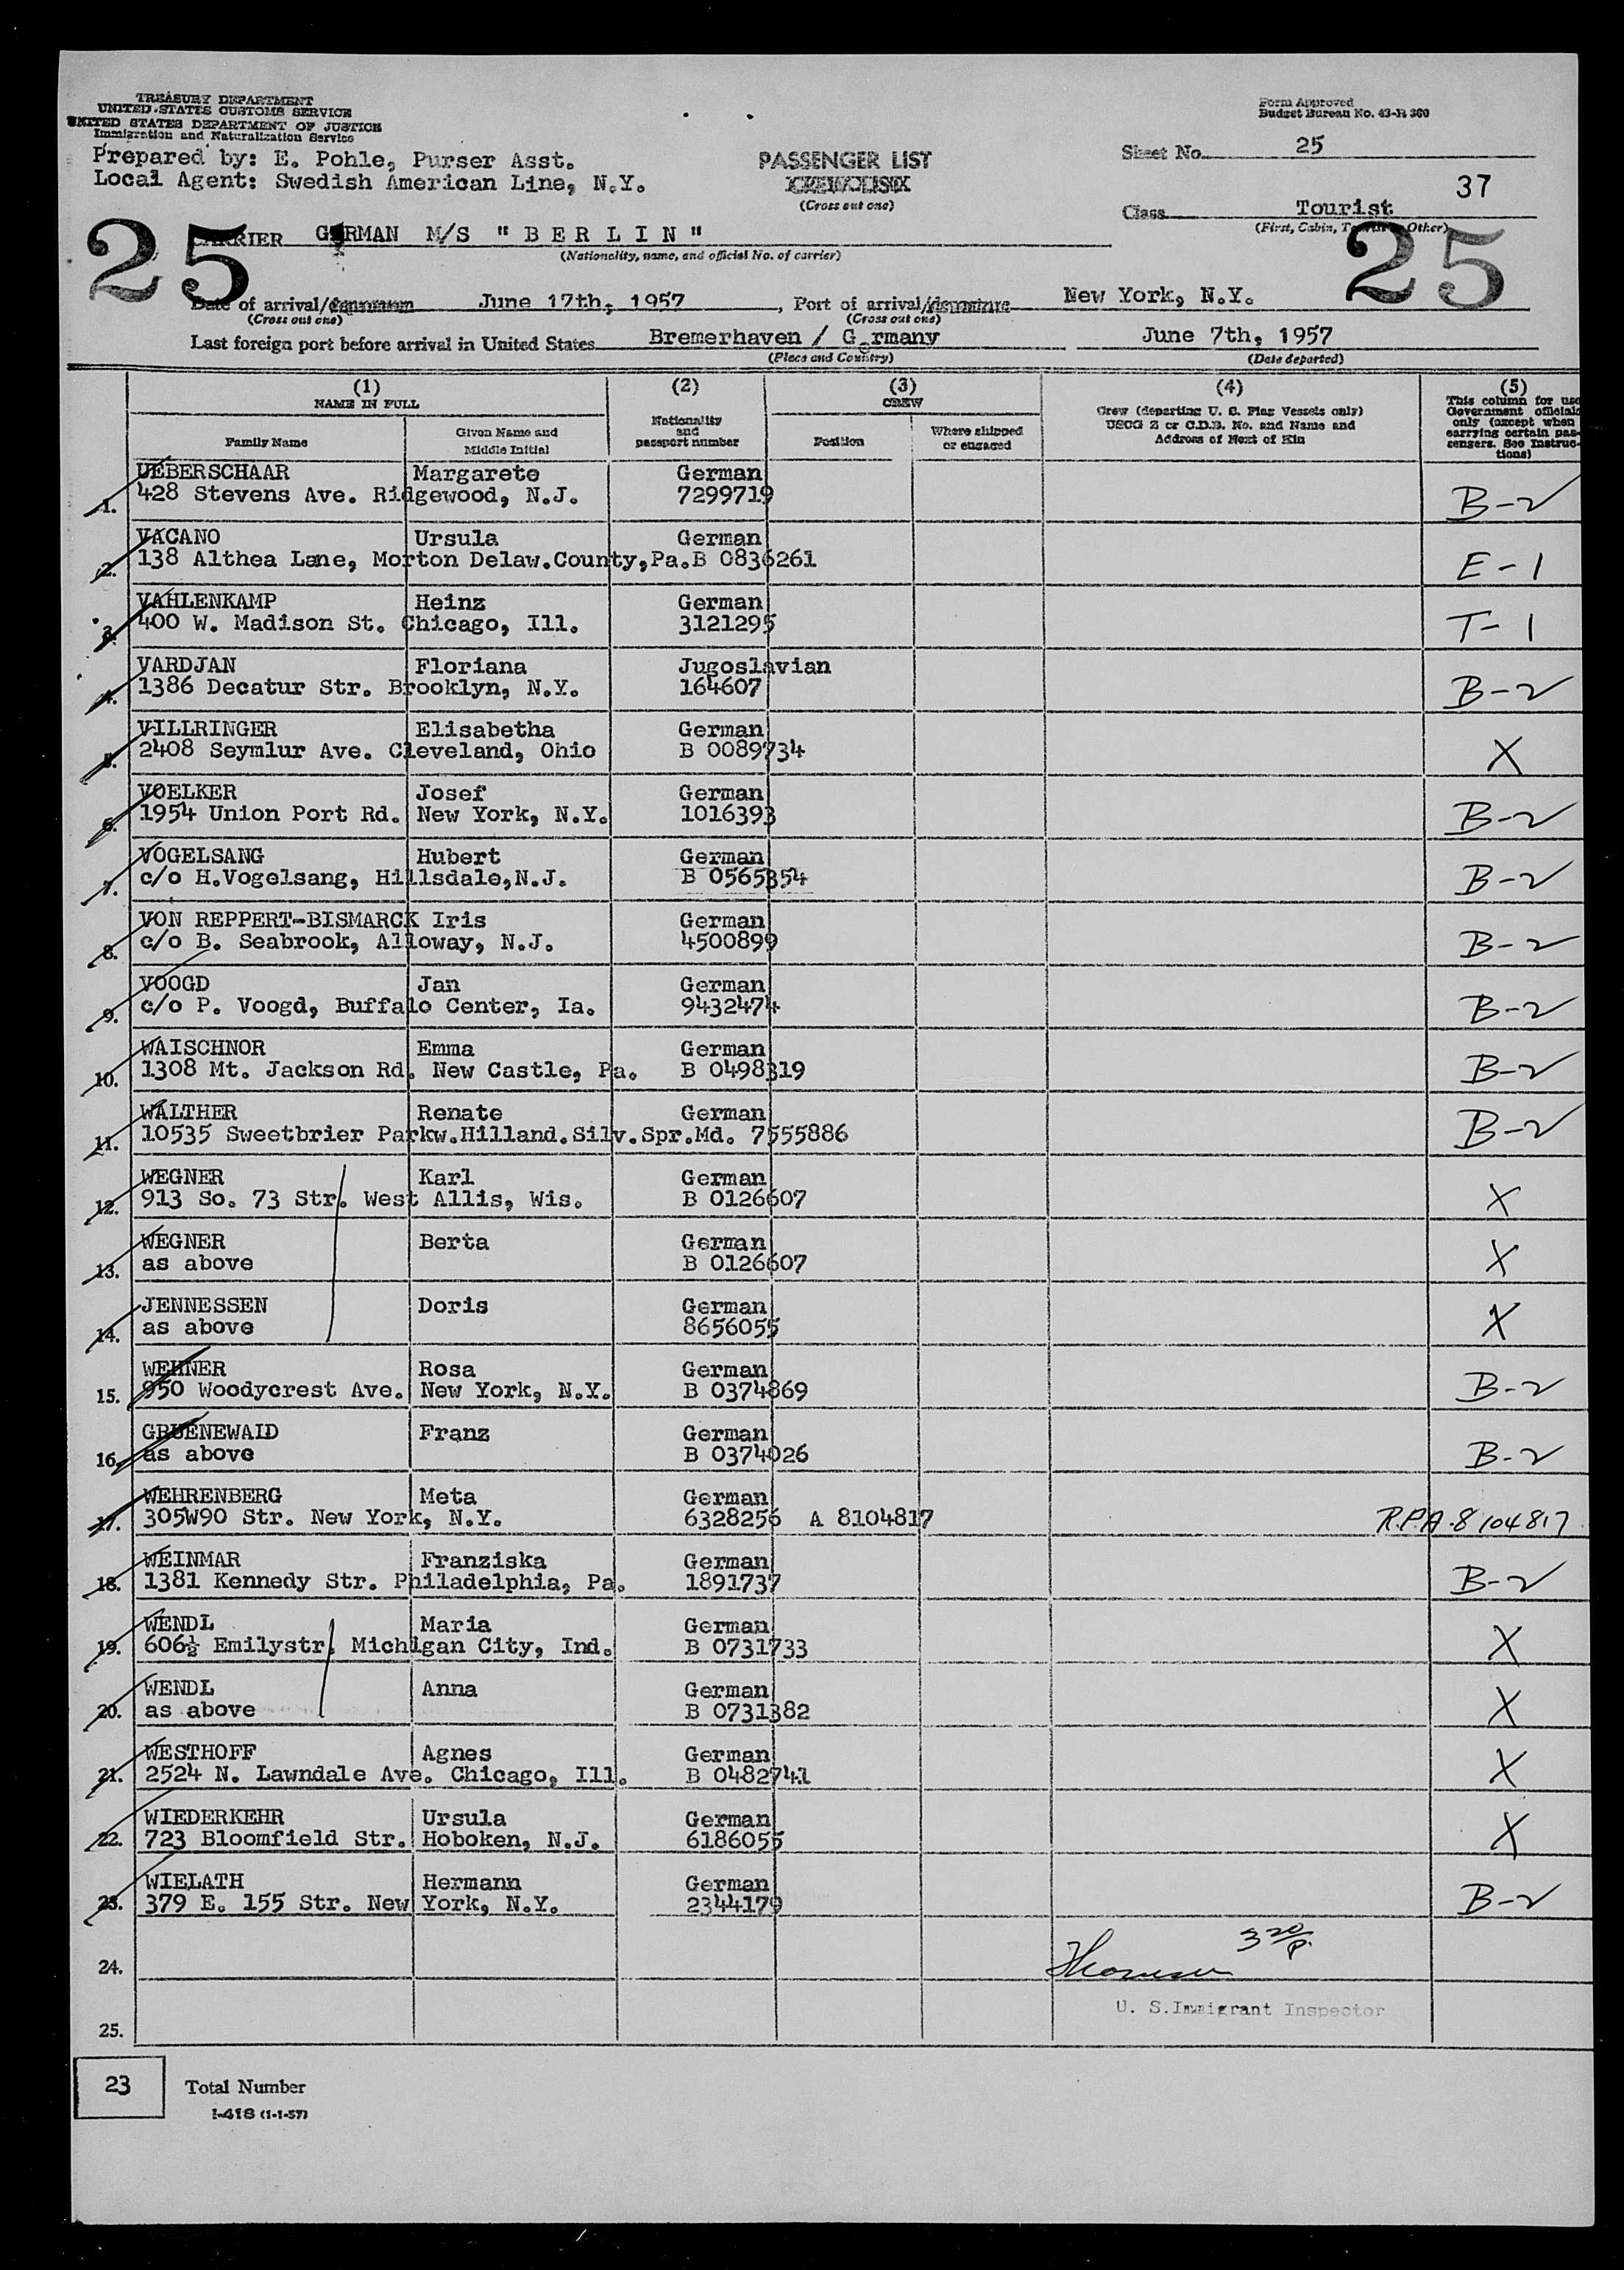 TREASURY DEPARTMENT
UNITED STATES CUSTOMS SERVICE
UNITED STATES DEPARTMENT OF JUSTICE
Immigration and Naturalization Service
Form Approved
Budget Bureau No. 43-R 360
Prepared by: E. Pohle, Purser Asst.
Local Agent: Swedish American Line, N.Y.
PASSENGER LIST
CREW LIST
(Cross out one)
Sheet No. 25
37
Class Tourist
(First, Cabin, Tourist, Other)
25
25
CARRIER GERMAN M/S "BERLIN"
(Nationality, name, and official No. of carrier)
Date of arrival/departure June 17th, 1957, Port of arrival/departure New York, N.Y.
(Cross out one) (Cross out one)
Last foreign port before arrival in United States Bremerhaven / Germany June 7th, 1957
(Place and Country) (Date departed)
(1) (2) (3) (4) (5)
NAME IN FULL
Family Name
Given Name and Middle Initial
Nationality and passport number
CREW
Position
Where shipped or engaged
Crew (departing U. S. Flag Vessels only)
USCG Z or C.D.B. No. and Name and
Address of Next of Kin
This column for use
Government officials
only (except when
carrying certain pas-
sengers. See Instruc-
tions)
1. UEBERSCHAAR Margarete German
428 Stevens Ave. Ridgewood, N.J. 7299719 B-2
2. VACANO Ursula German
138 Althea Lane, Morton Delaw.County,Pa.B 0836261 E-1
3. VAHLENKAMP Heinz German
400 W. Madison St. Chicago, Ill. 3121295 T-1
4. VARDJAN Floriana Jugoslavian
1386 Decatur Str. Brooklyn, N.Y. 164607 B-2
5. VILLRINGER Elisabetha German
2408 Seymlur Ave. Cleveland, Ohio B 0089734 X
6. VOELKER Josef German
1954 Union Port Rd. New York, N.Y. 1016393 B-2
7. VOGELSANG Hubert German
c/o H.Vogelsang, Hillsdale,N.J. B 0565354 B-2
8. VON REPPERT-BISMARCK Iris German
c/o B. Seabrook, Alloway, N.J. 4500899 B-2
9. VOOGD Jan German
c/o P. Voogd, Buffalo Center, Ia. 9432474 B-2
10. WAISCHNOR Emma German
1308 Mt. Jackson Rd. New Castle, Pa. B 0498319 B-2
11. WALTHER Renate German
10535 Sweetbrier Parkw.Hilland.Silv.Spr.Md. 7555886 B-2
12. WEGNER Karl German
913 So. 73 Str. West Allis, Wis. B 0126607 X
13. WEGNER Berta German
as above B 0126607 X
14. JENNESSEN Doris German
as above 8656055 X
15. WEHNER Rosa German
950 Woodycrest Ave. New York, N.Y. B 0374869 B-2
16. GRUENEWAID Franz German
as above B 0374026 B-2
17. WEHRENBERG Meta German
305W90 Str. New York, N.Y. 6328256 A 8104817 R.P.A. 8104817
18. WEINMAR Franziska German
1381 Kennedy Str. Philadelphia, Pa. 1891737 B-2
19. WENDL Maria German
606½ Emilystr. Michigan City, Ind. B 0731733 X
20. WENDL Anna German
as above B 0731382 X
21. WESTHOFF Agnes German
2524 N. Lawndale Ave. Chicago, Ill. B 0482741 X
22. WIEDERKEHR Ursula German
723 Bloomfield Str. Hoboken, N.J. 6186055 X
23. WIELATH Hermann German
379 E. 155 Str. New York, N.Y. 2344179 B-2
24. 3 20/P.
U. S.Immigrant Inspector
25.
23 Total Number
I-418 (1-1-57)